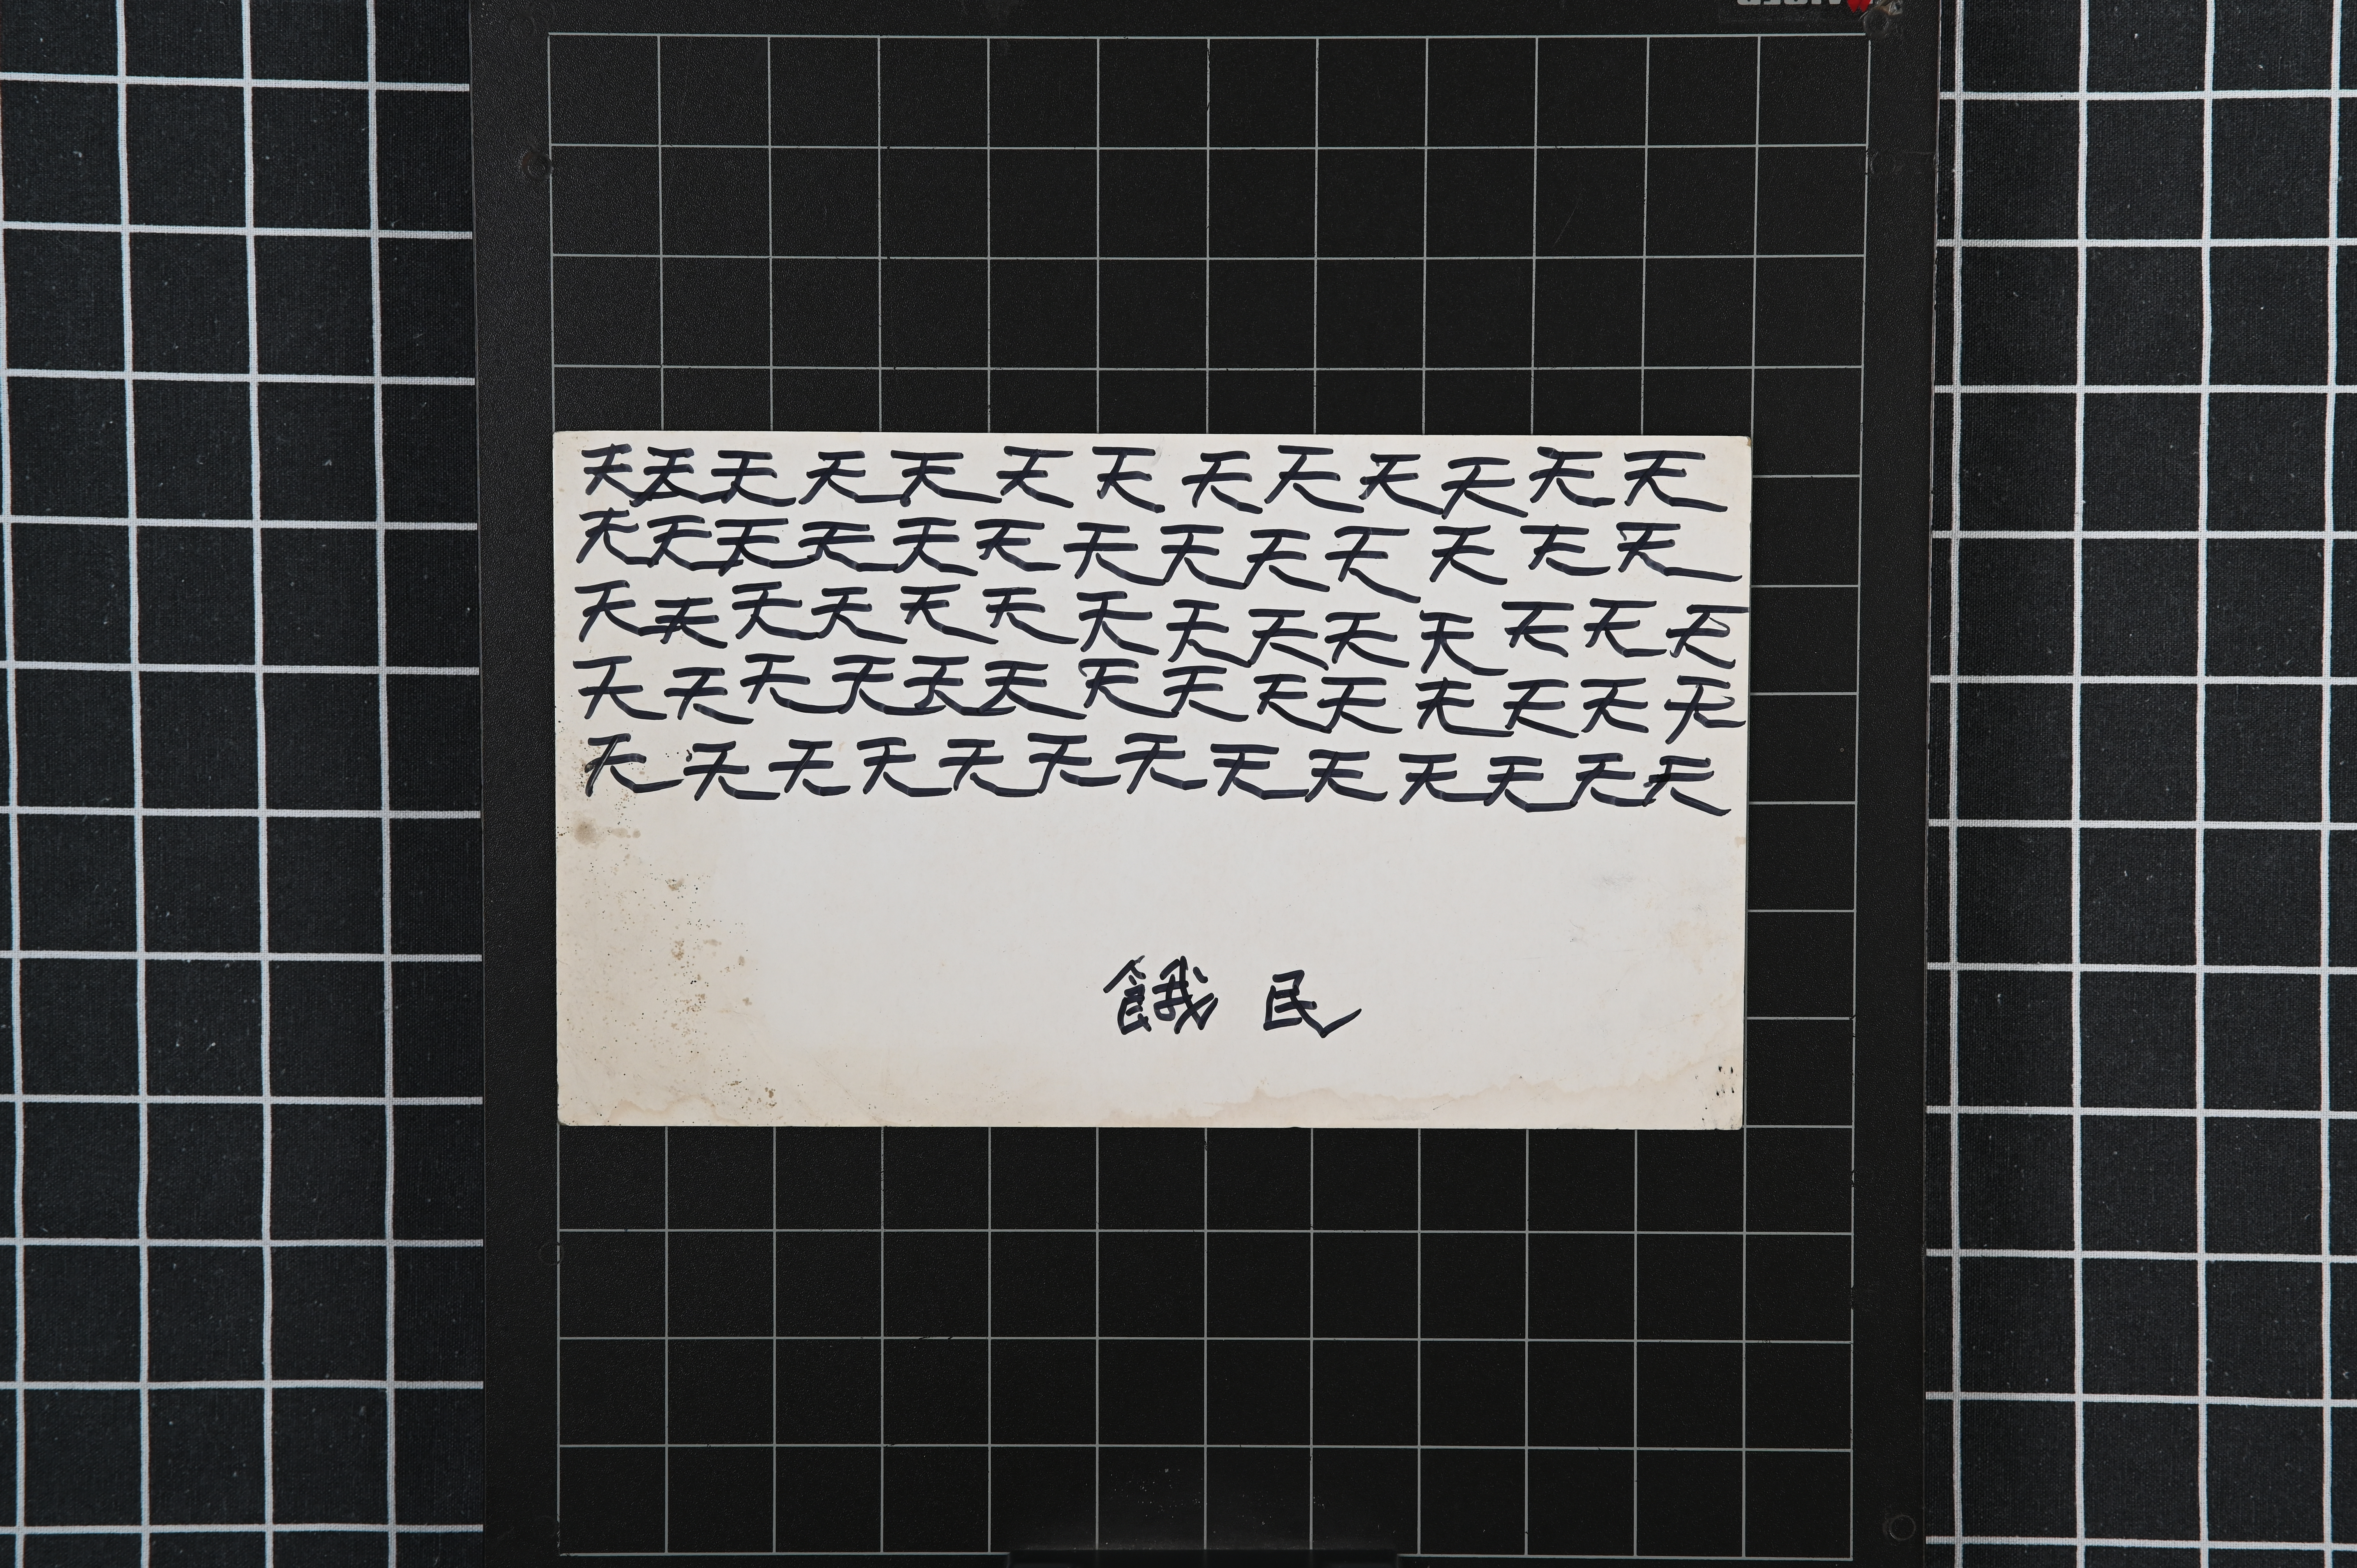 天天天天天天天天天天天天天
天天天天天天天天天天天天天
天天天天天天天天天天天天天天
天天天天天天天天天天天天天天
天天天天天天天天天天天天天
餓 民